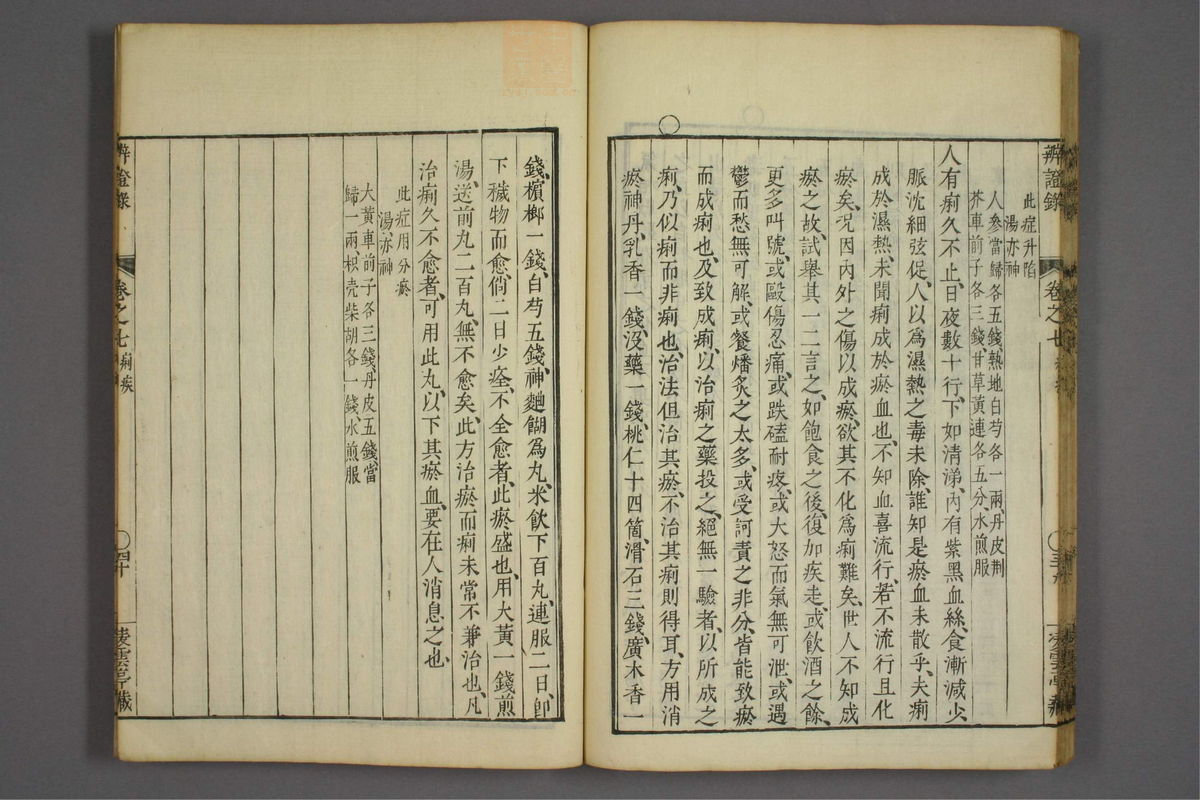 辨證錄
卷之七
此症升陷
湯亦神
人參當歸各五錢熟地白芍各一兩丹皮荆
芥車前子各三錢甘草黃連各五分水煎服
人有痢久不止、日夜數十行、下如清涕、內有紫黑血絲、食漸減少、
脈沈細弦促、人以爲濕熱之毒未除、誰知是瘀血未散乎、夫痢
成於濕熱、未聞痢成於瘀血也、不知血喜流行、若不流行且化
瘀矣、况因內外之傷以成瘀、欲其不化爲痢難矣、世人不知成
瘀之故、試舉其一二言之、如飽食之後、復加疾走、或飲酒之餘、
更多叫號、或毆傷忍痛、或跌磕耐疼、或大怒而氣無可泄、或遇
鬱而愁無可解、或餐燔炙之太多、或受訶責之非分、皆能致瘀
而成痢也、及致成痢、以治痢之藥投之、絕無一驗者、以所成之
痢、乃似痢而非痢也、治法但治其瘀、不治其痢則得耳、方用消
瘀神丹、乳香一錢、沒藥一錢、桃仁十四箇、滑石三錢、廣木香一
錢、檳榔一錢、白芍五錢、神麯餬爲丸、米飲下百丸、連服二日、卽
下穢物而愈、倘二日少痊、不全愈者、此瘀盛也、用大黃一錢煎
湯、送前丸二百丸、無不愈矣、此方治瘀而痢未常不兼治也、凡
治痢久不愈者、可用此丸、以下其瘀血、要在人消息之也、
此症用分瘀
湯亦神
大黃車前子各三錢、丹皮五錢當
歸一兩、枳壳柴胡各一錢、水煎服
辨證錄
卷之七
痢疾
四十
凌雲亭藏